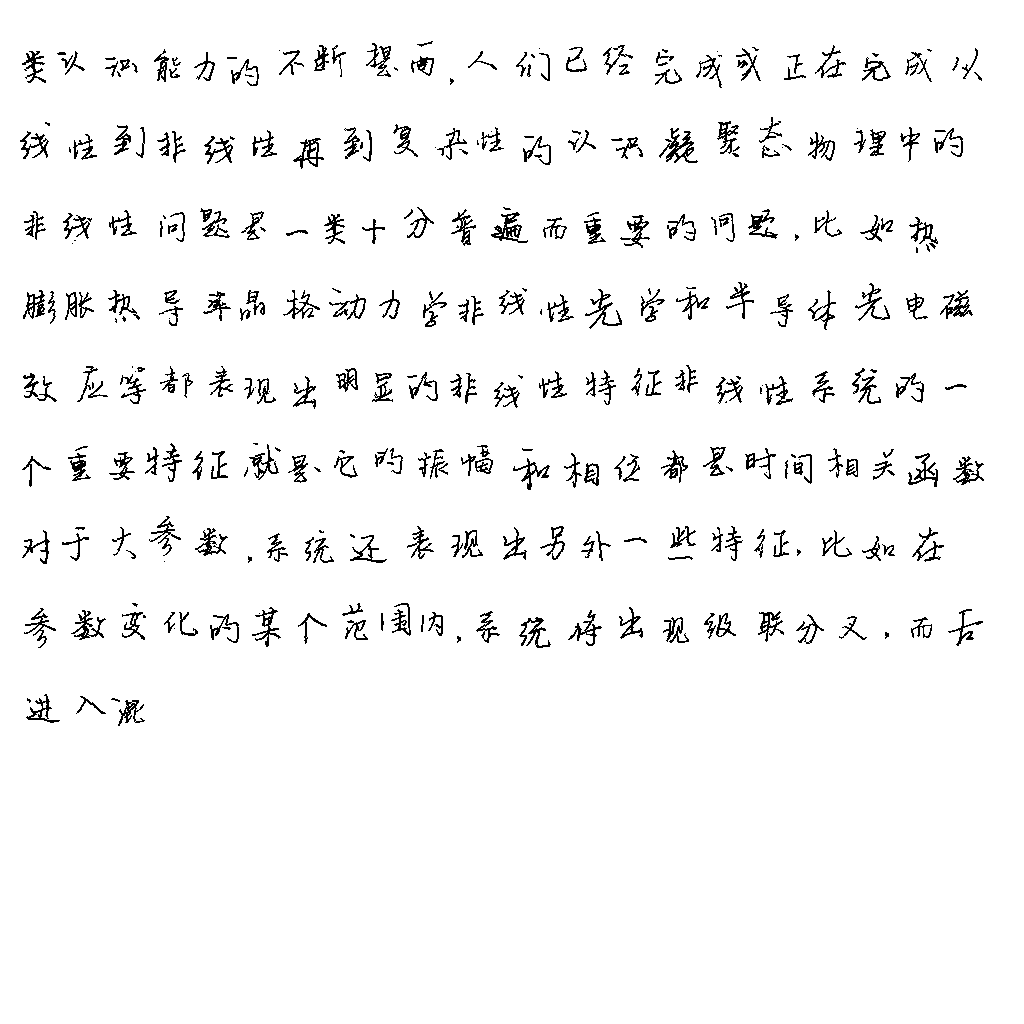 类认识能力的不断提高,人们已经完成或正在完成从
线性到非线性再到复杂性的认识凝聚态物理中的
非线性问题是一类十分普遍而重要的问题,比如热
膨胀热导率晶格动力学非线性光学和半导体光电磁
效应等都表现出明显的非线性特征非线性系统的一
个重要特征就是它的振幅和相位都是时间相关函数
对于大参数,系统还表现出另外一些特征,比如在
参数变化的某个范围内,系统将出现级联分叉,而后
进入混